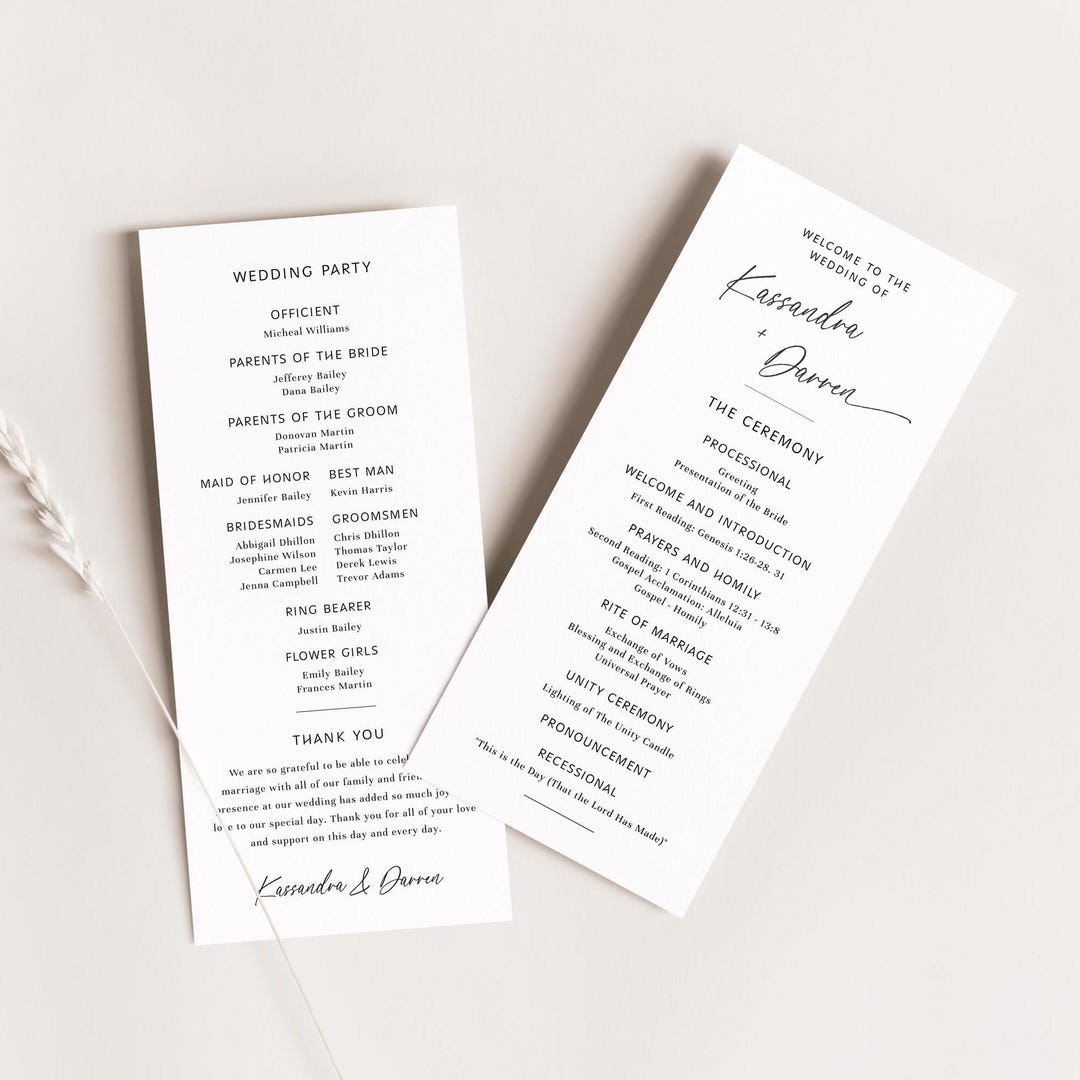 WEDDING PARTY
OFFICIENT
Micheal Williams
PARENTS OF THE BRIDE
Jefferey Bailey
Dana Bailey
PARENTS OF THE GROOM
Donovan Martin
Patricia Martin
MAID OF HONOR
Jennifer Bailey
BEST MAN
Kevin Harris
BRIDESMAIDS
Abbigail Dhillon
Josephine Wilson
Carmen Lee
Jenna Campbell
GROOMSMEN
Chris Dhillon
Thomas Taylor
Derek Lewis
Trevor Adams
RING BEARER
Justin Bailey
FLOWER GIRLS
Emily Bailey
Frances Martin
THANK YOU
We are so grateful to be able to
marriage with all of our family and
presence at our wedding has added so much joy
love to our special day. Thank you for all of your love
and support on this day and every day.
Kassandra & Darren
WELCOME TO THE
WEDDING OF
Kassandra
+
Darren
THE CEREMONY
PROCESSIONAL
Greeting
Presentation of the Bride
WELCOME AND INTRODUCTION
First Reading: Genesis 1:26-28, 31
PRAYERS AND HOMILY
Second Reading: 1 Corinthians 12:31 - 13:8
Gospel Acclamation: Alleluia
Gospel - Homily
RITE OF MARRIAGE
Exchange of Vows
Blessing and Exchange of Rings
Universal Prayer
UNITY CEREMONY
Lighting of The Unity Candle
PRONOUNCEMENT
RECESSIONAL
"This is the Day (That the Lord Has Made)"